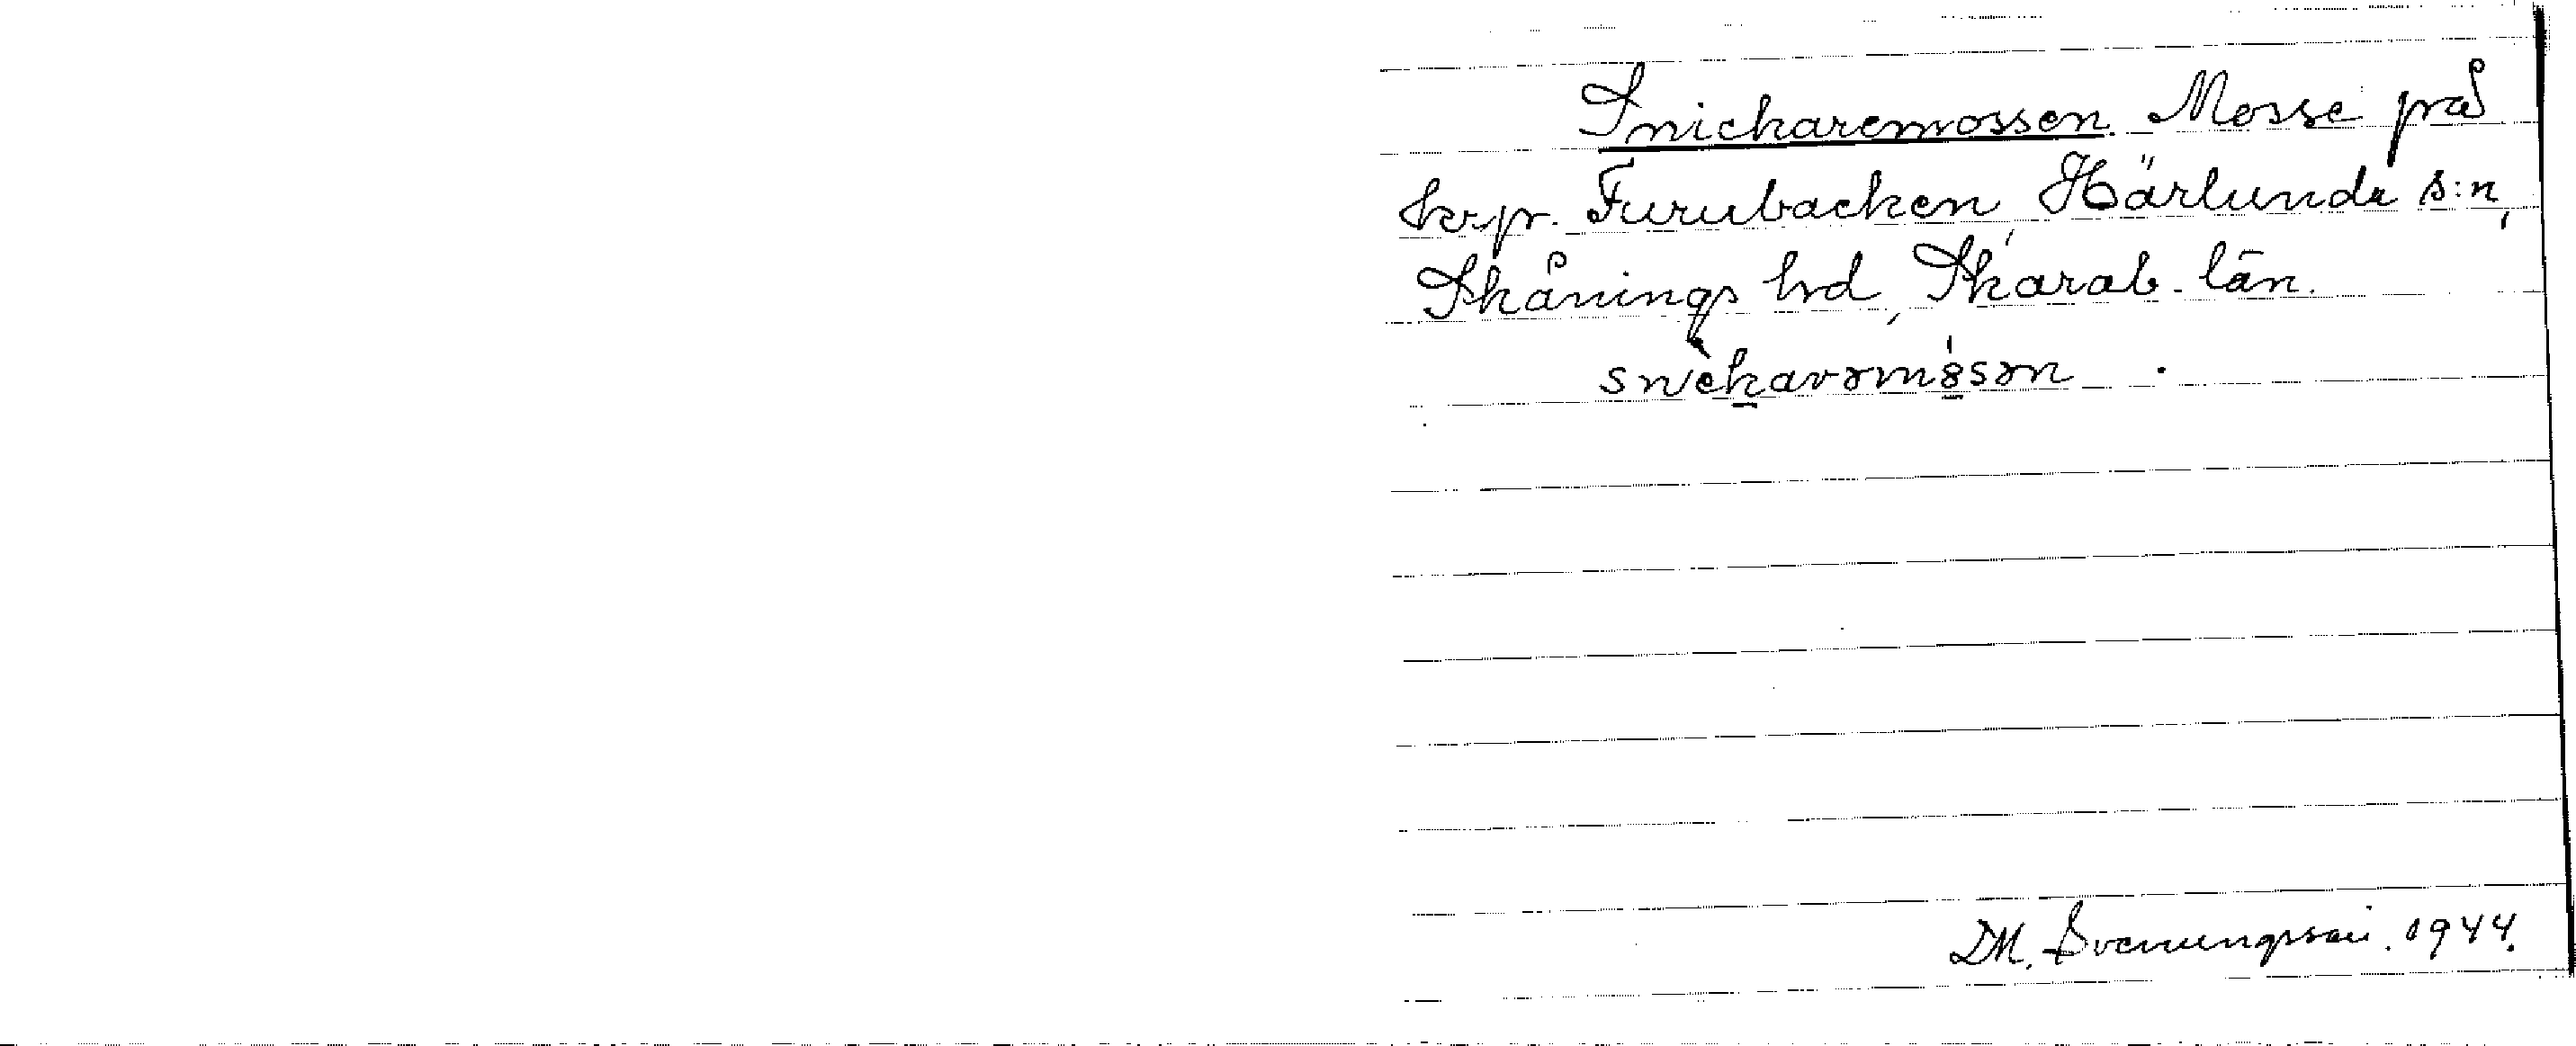 Snickaremossen. Mosse på
kr.pr. Furubacken, Härlunda s:n,
Skånings hd, Skarab. län.
snèkarəm8sən.
D.M. Svenungsson. 1944.